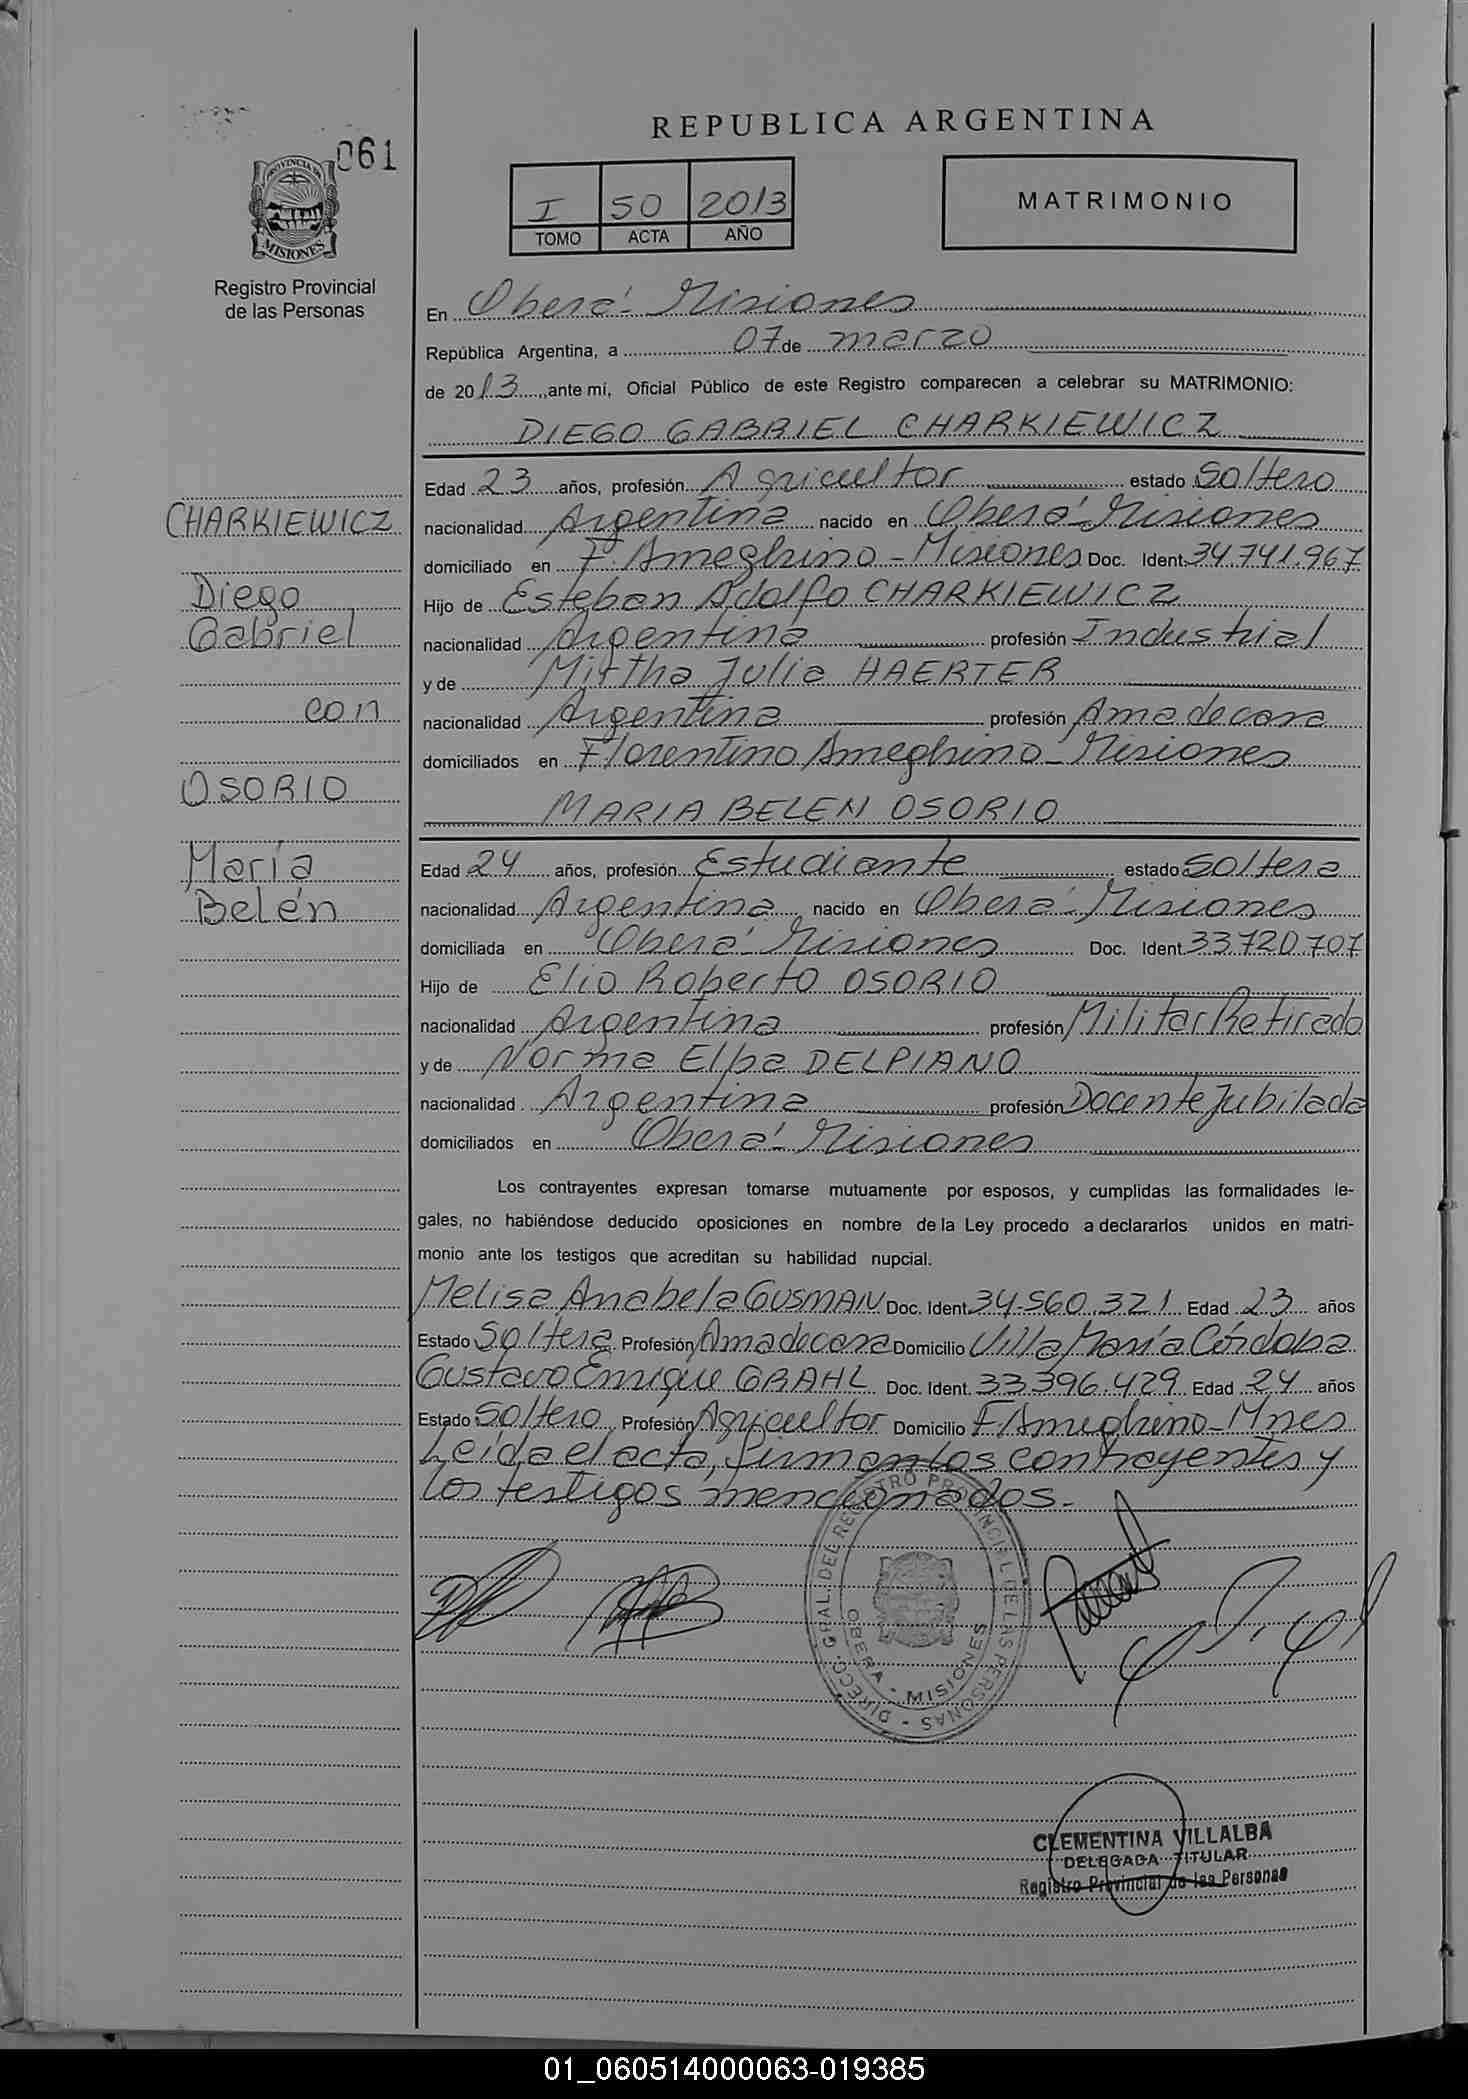 REPUBLICA ARGENTINA
061
PROVINCIA DE
MISIONES
Registro Provincial
de las Personas
I 50 2013
TOMO ACTA AÑO
MATRIMONIO
En Oberá - Misiones
República Argentina, a 07 de marzo
de 2013, ante mí, Oficial Público de este Registro comparecen a celebrar su MATRIMONIO:
DIEGO GABRIEL CHARKIEWICZ
Edad 23 años, profesión Agricultor estado Soltero
nacionalidad Argentina nacido en Oberá - Misiones
domiciliado en F. Ameghino - Misiones Doc. Ident. 34.741.967
Hijo de Esteban Adolfo CHARKIEWICZ
nacionalidad Argentina profesión Industrial
y de Mirtha Julia HAERTER
nacionalidad Argentina profesión Ama de casa
domiciliados en Florentino Ameghino - Misiones
MARIA BELEN OSORIO
Edad 24 años, profesión Estudiante estado Soltera
nacionalidad Argentina nacido en Oberá - Misiones
domiciliada en Oberá - Misiones Doc. Ident. 33.720.707
Hijo de Elio Roberto OSORIO
nacionalidad Argentina profesión Militar Retirado
y de Norma Elba DELPIANO
nacionalidad Argentina profesión Docente Jubilada
domiciliados en Oberá - Misiones
CHARKIEWICZ
Diego
Gabriel
con
OSORIO
María
Belén
Los contrayentes expresan tomarse mutuamente por esposos, y cumplidas las formalidades le-
gales, no habiéndose deducido oposiciones en nombre de la Ley procedo a declararlos unidos en matri-
monio ante los testigos que acreditan su habilidad nupcial.
Melisa Anabela GUSMAN Doc. Ident. 34.560.321 Edad 23 años
Estado Soltera Profesión Ama de casa Domicilio Villa María Córdoba
Gustavo Enrique GRAHL Doc. Ident. 33.396.429 Edad 24 años
Estado Soltero Profesión Agricultor Domicilio F. Ameghino - Mnes
Leída el acta, firman los contrayentes y
los testigos mencionados.-
DIRECC. GRAL. DEL REGISTRO PROVINCIAL DE LAS PERSONAS
OBERA - MISIONES
CLEMENTINA VILLALBA
DELEGADA TITULAR
Registro Provincial de las Personas
01_060514000063-019385